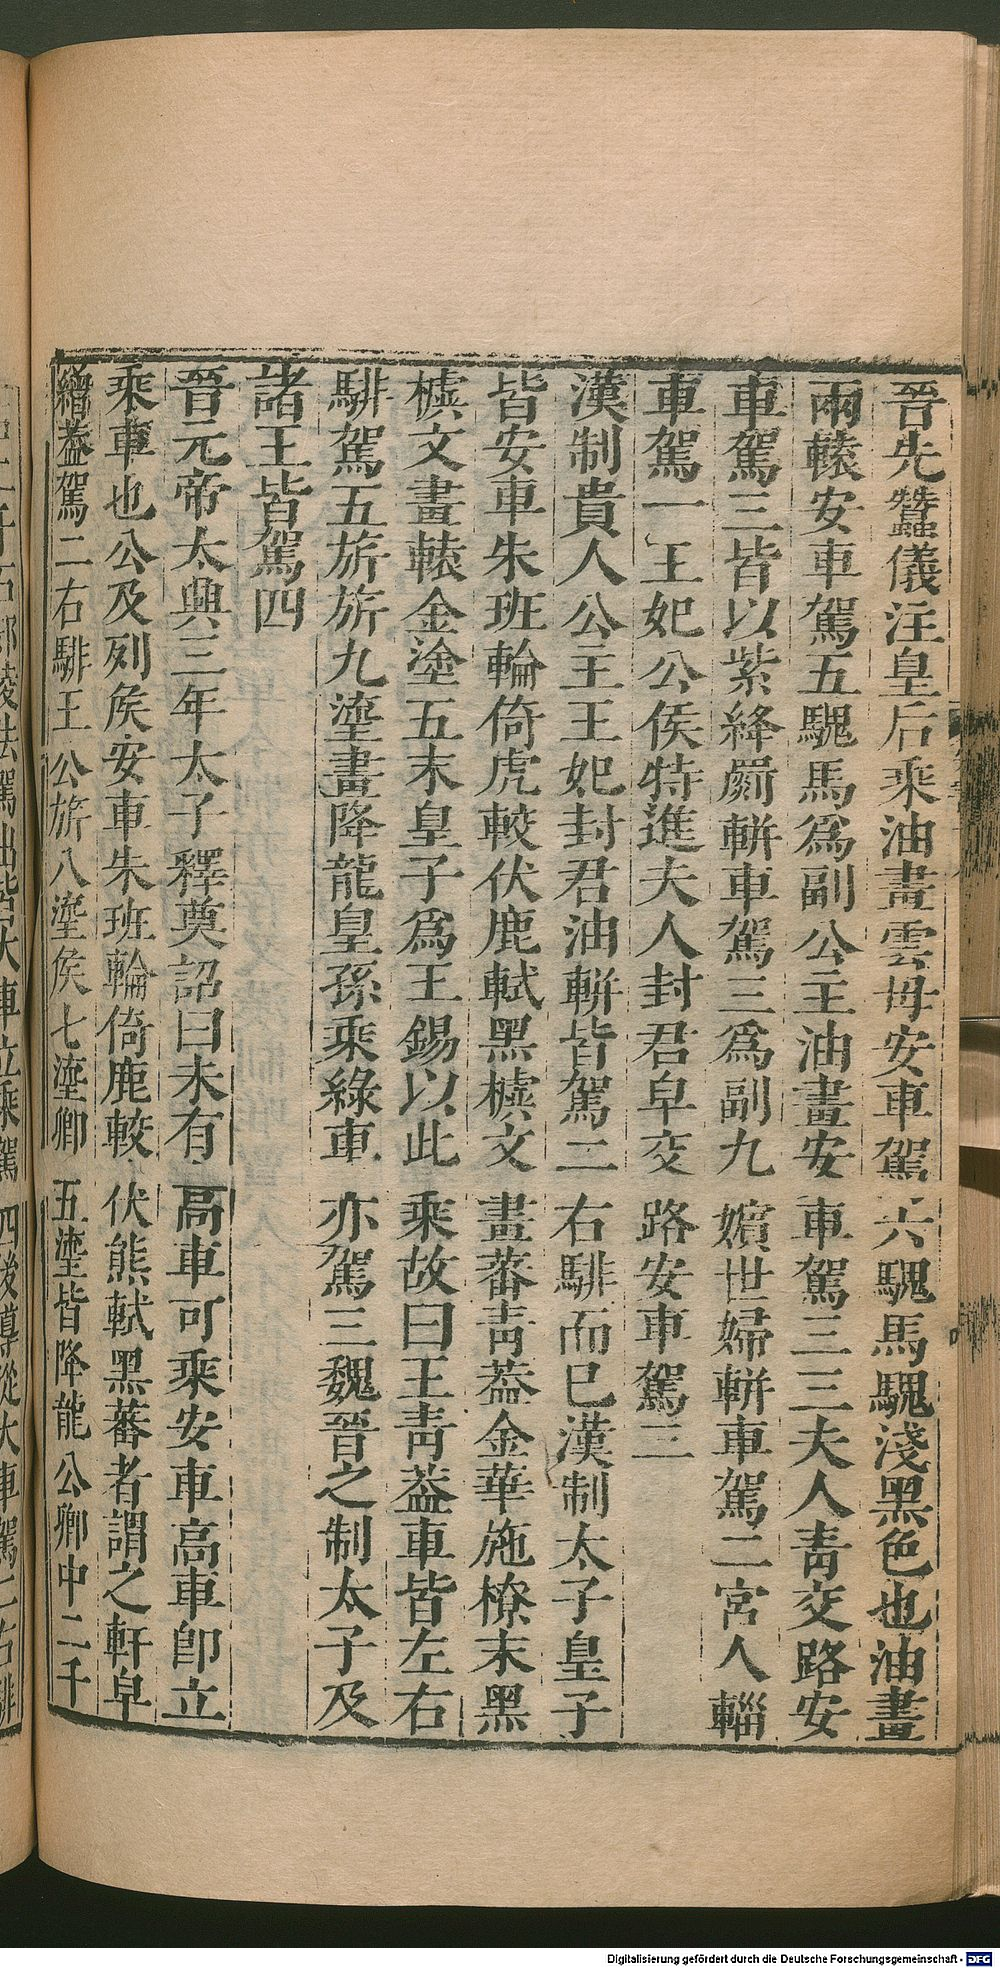 晉先蠶儀注皇后乘油畫雲母安車駕六騩馬騩淺黑色也油畫
兩轅安車駕五騩馬爲副公主油畫安車駕三三夫人青交路安
車駕三皆以紫絳罽軿車駕三爲副九嬪世婦軿車駕二宮人輜
車駕一王妃公侯特進夫人封君皁交路安車駕三
漢制貴人公主王妃封君油軿皆駕二右騑而已漢制太子皇子
皆安車朱班輪倚虎較伏鹿軾黑櫎文畫蕃靑葢金華施橑末黑
櫎文畫轅金塗五末皇子爲王錫以此乘故曰王靑葢車皆左右
騑駕五旂旂九㙜畫降龍皇孫乘綠車亦駕三魏晉之制太子及
諸王皆駕四
晉元帝太興三年太子釋奠詔曰未有高車可乘安車高車卽立
乘車也公及列矦安車朱班輪倚鹿較伏熊軾黑蕃者謂之軒皁
繒葢駕二右騑王公旂八㙜侯七㙜卿五㙜皆降龍公卿中二千
Digitalisierung gefördert durch die Deutsche Forschungsgemeinschaft - DFG